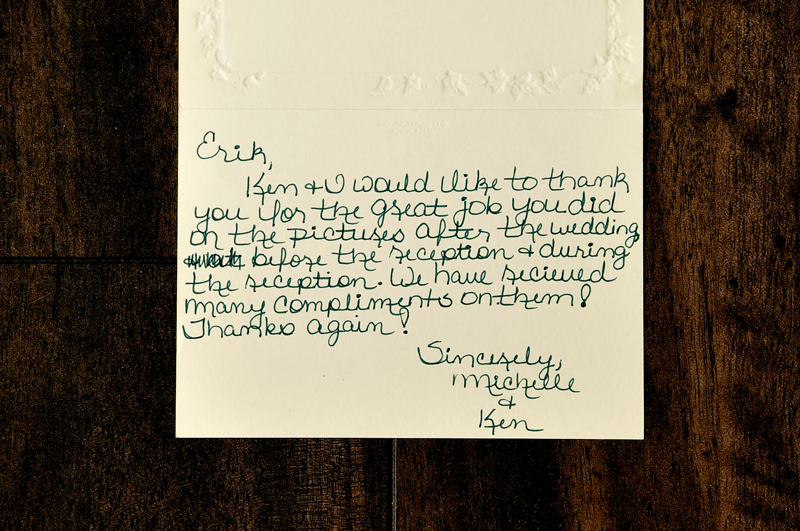 Erik,
Ken & I would like to thank
you for the great job you did
on the pictures after the wedding
before the reception & during
the reception. We have recieved
many compliments on them!
Thanks again!
Sincerely,
Michelle
&
Ken